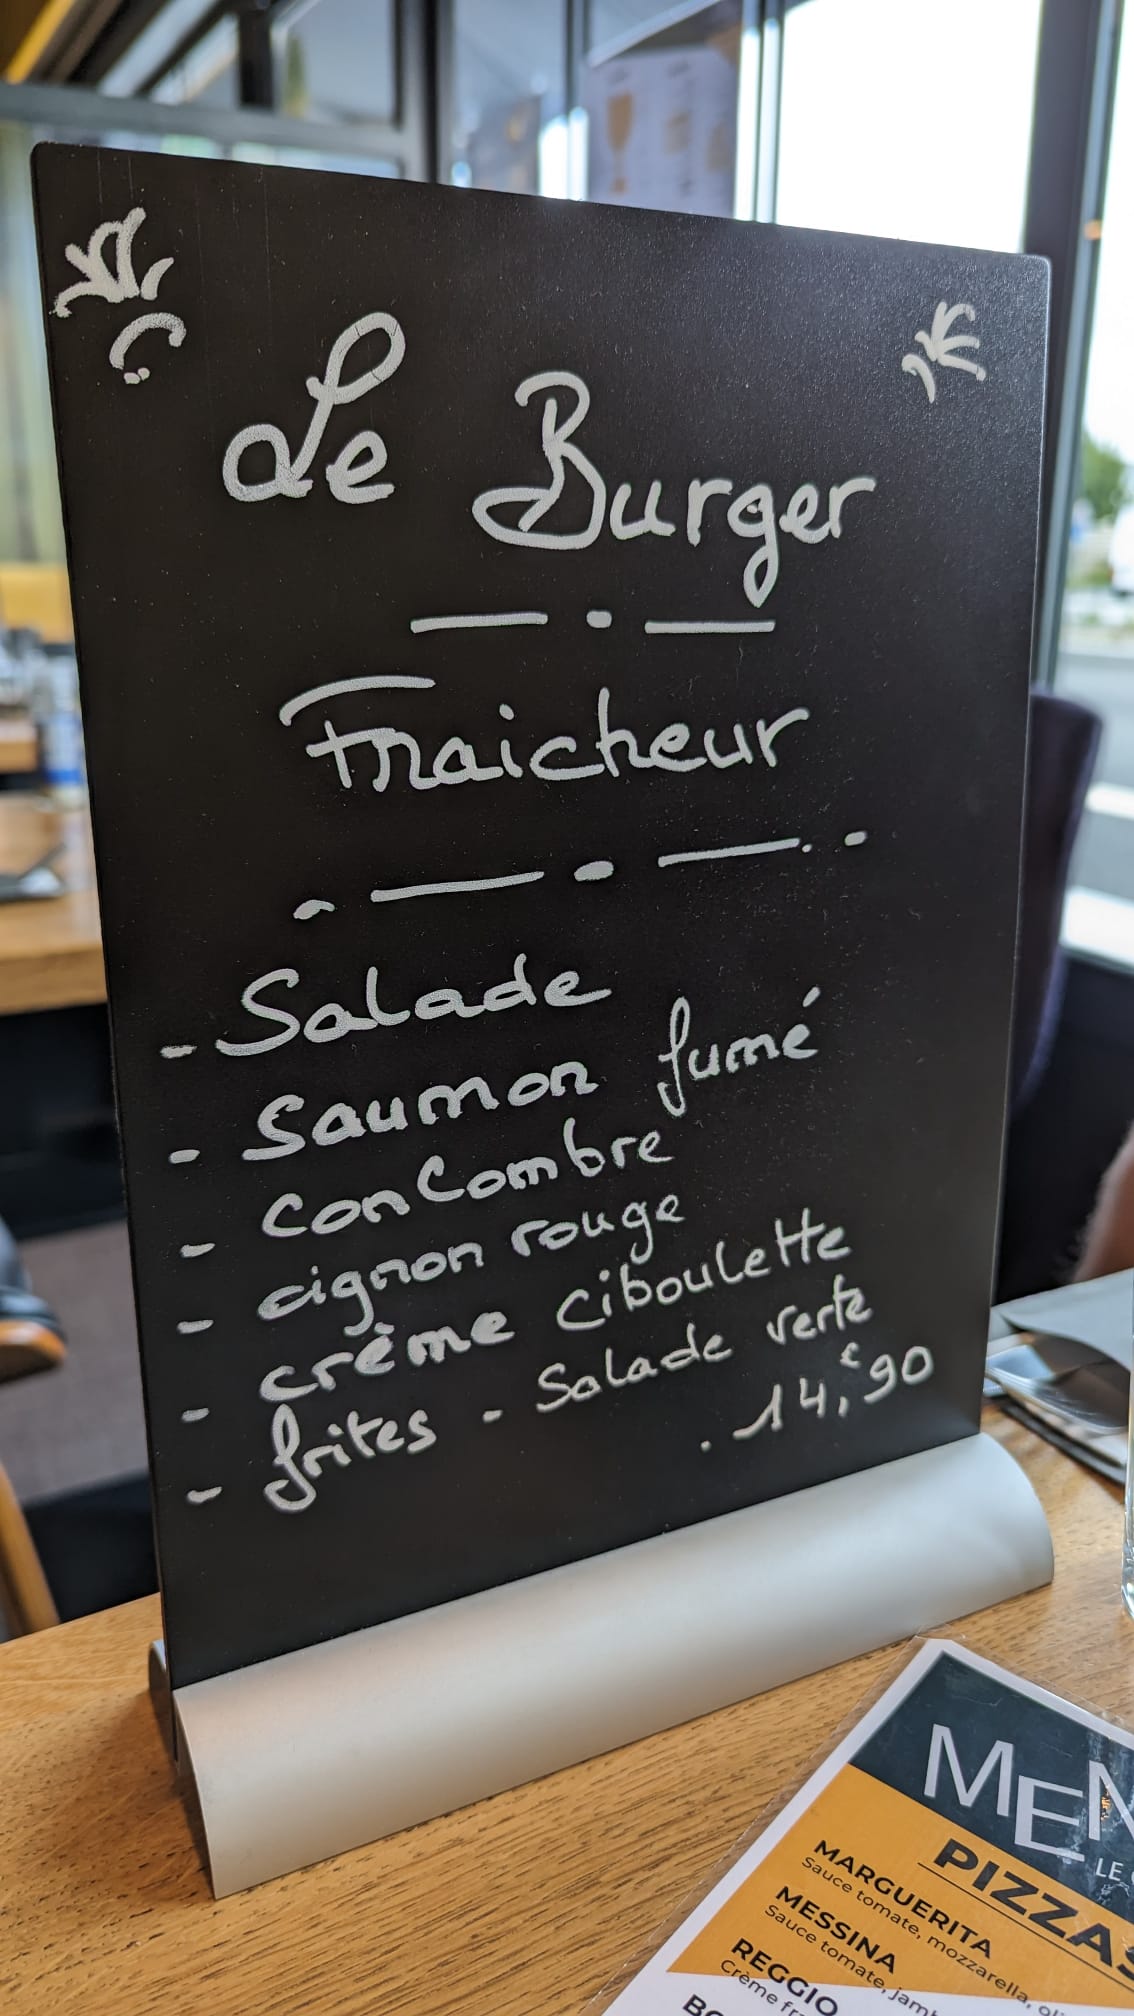 Le Burger
Fraicheur
- Salade
- Saumon fumé
- conCombre
- oignon rouge
- crème ciboulette
- frites - Salade verte
. 14,€90
MEN
LE
PIZZAS
MARGUERITA
Sauce tomate, mozzarella,
MESSINA
Sauce tomate,
REGGIO
Crème